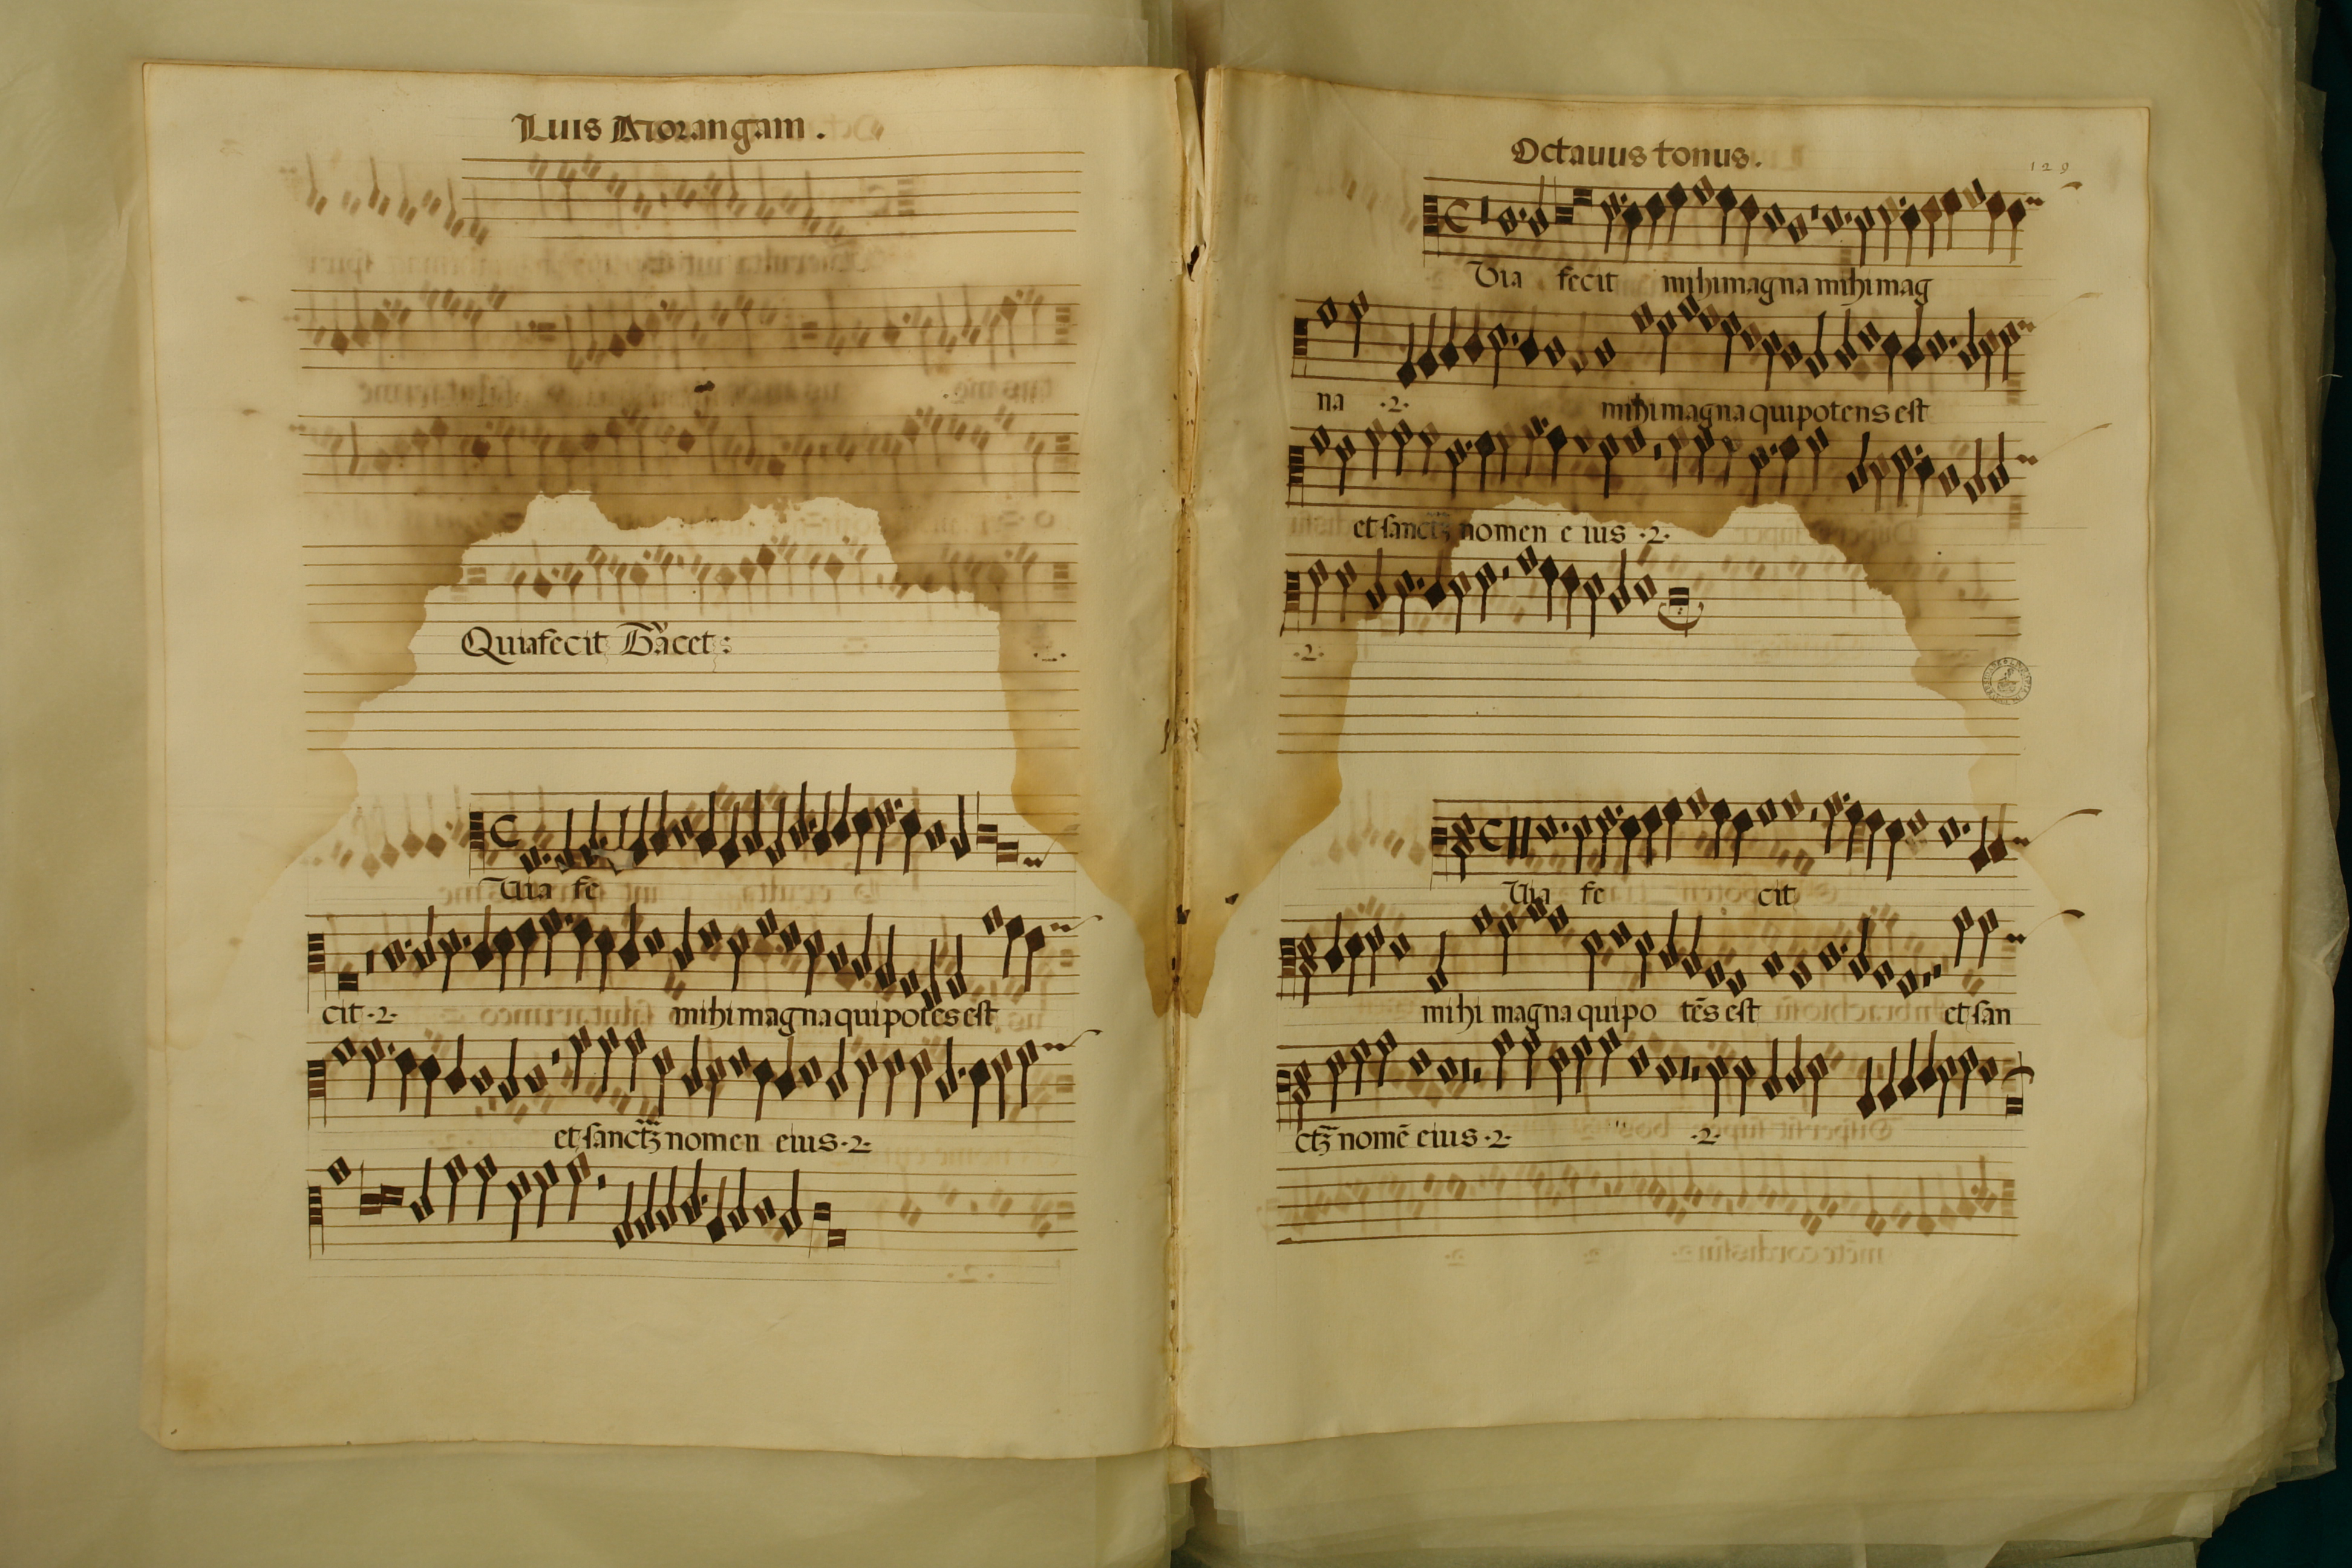 Luis Morangam.
Quia fecit Tacet:
Uia fe
cit ·2· mihi magna qui potēs est
et sanctū nomen eius ·2·
Octauus tonus.
129
Uia fecit mihi magna mihi mag
na ·2· mihi magna qui potens est
et sanctū nomen eius ·2·
·2·
Uia fe cit
mihi magna qui po tēs est et san
ctū nomē eius ·2· ·2·